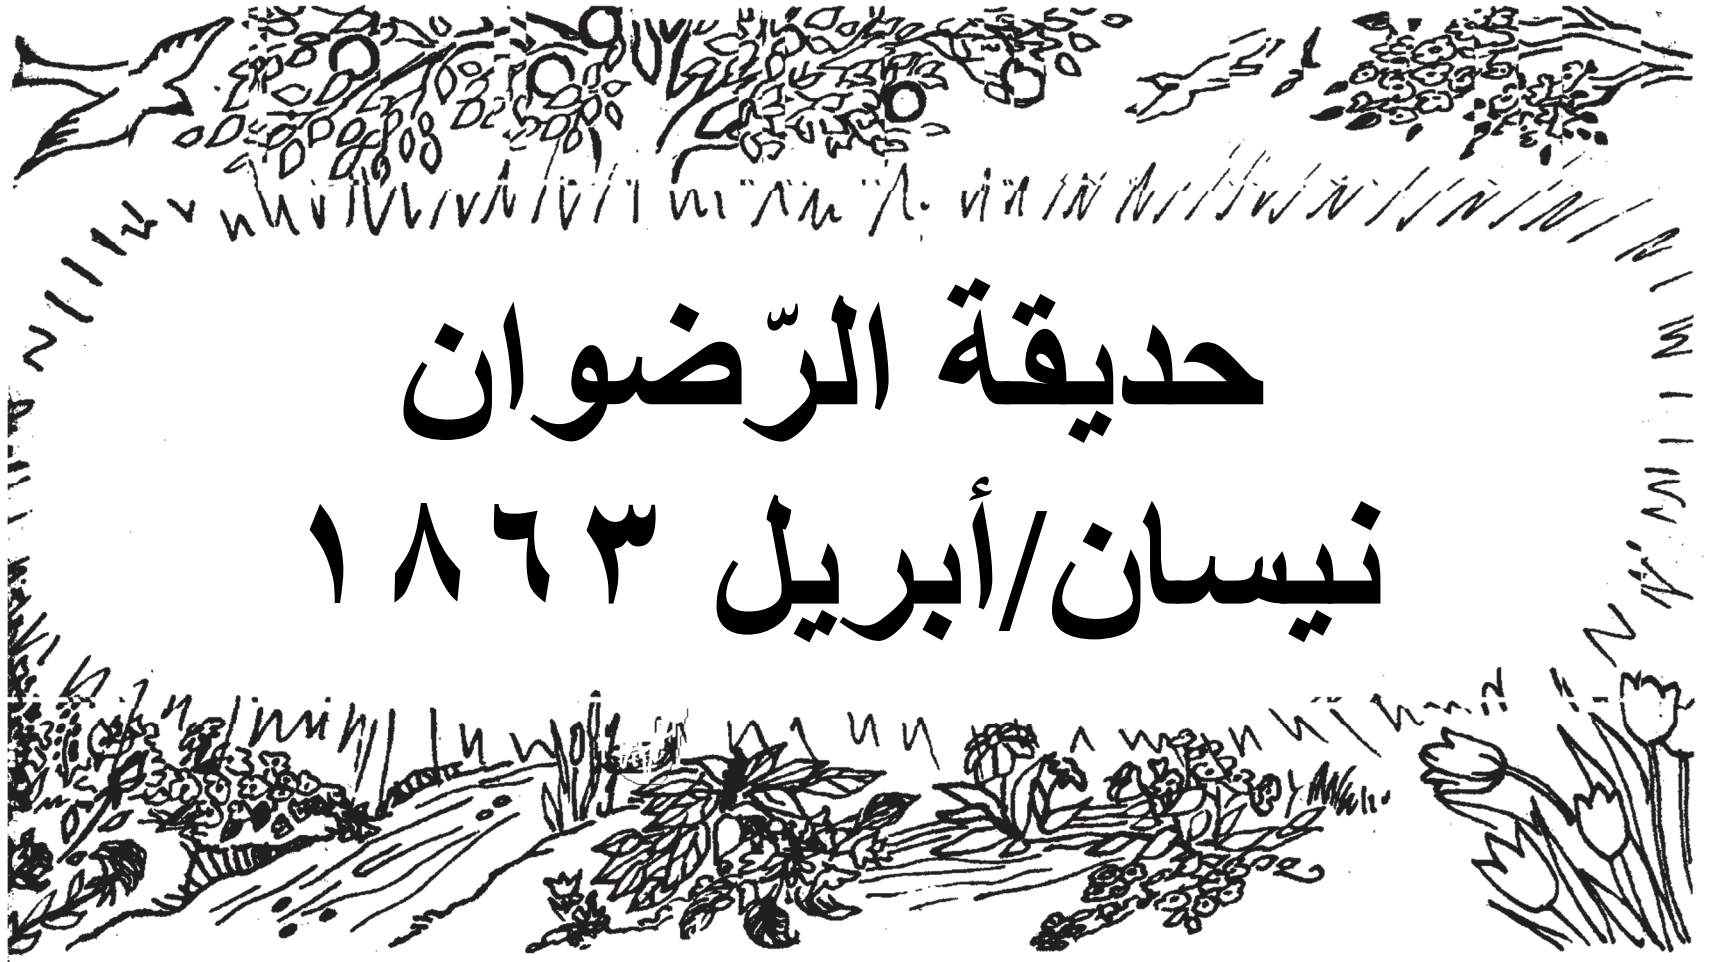 حديقة الرّضوان
نيسان/أبريل ١٨٦٣